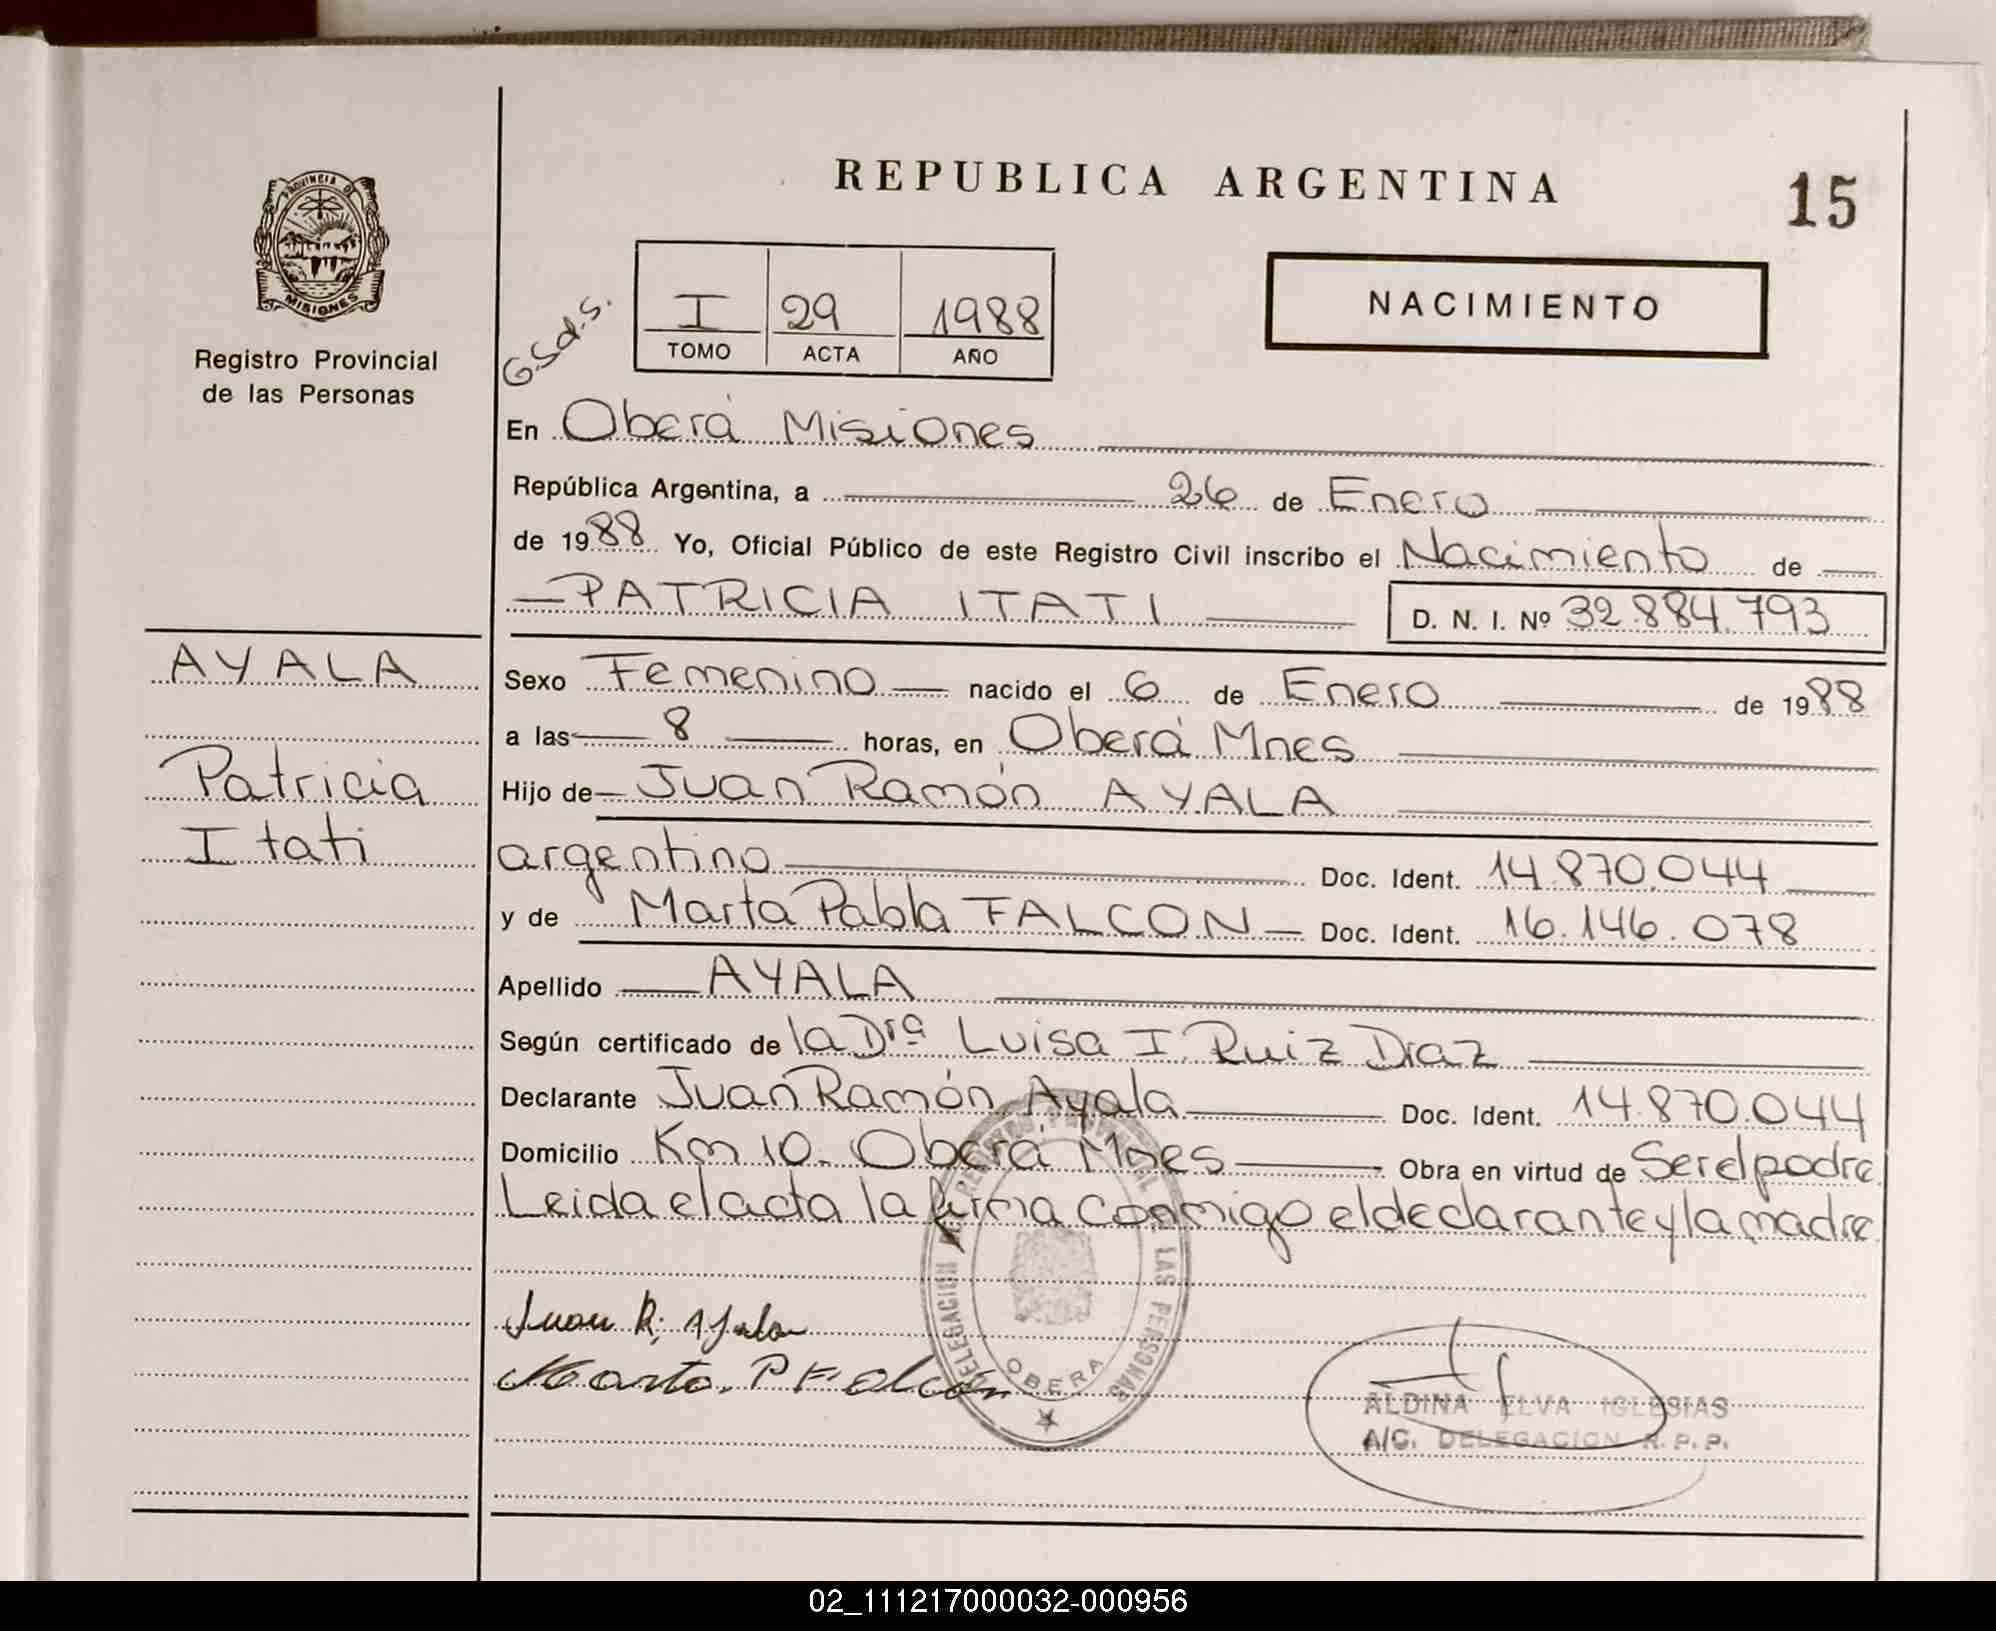 REPUBLICA ARGENTINA
15
PROVINCIA DE
MISIONES
Registro Provincial
de las Personas
G.S.d.S.
I 29 1988
TOMO ACTA AÑO
NACIMIENTO
En Oberá Misiones
República Argentina, a 26 de Enero
de 1988 Yo, Oficial Público de este Registro Civil inscribo el Nacimiento de
PATRICIA ITATI D. N. I. Nº 32.884.793
AYALA
Patricia
Itati
Sexo Femenino nacido el 6 de Enero de 1988
a las 8 horas, en Oberá Mnes
Hijo de Juan Ramón AYALA
argentino Doc. Ident. 14.870.044
y de Marta Pabla FALCON Doc. Ident. 16.146.078
Apellido AYALA
Según certificado de la Drª Luisa I. Ruiz Diaz
Declarante Juan Ramón Ayala Doc. Ident. 14.870.044
Domicilio Km 10. Oberá Mnes Obra en virtud de Ser el padre
Leida el acta la firma conmigo el declarante y la madre
Juan R; Ayala
Marta. P Falcón
DELEGACION DEL REGISTRO PROVINCIAL DE LAS PERSONAS
OBERA
ALDINA ELVA IGLESIAS
A/C. DELEGACION R. P. P.
02_111217000032-000956